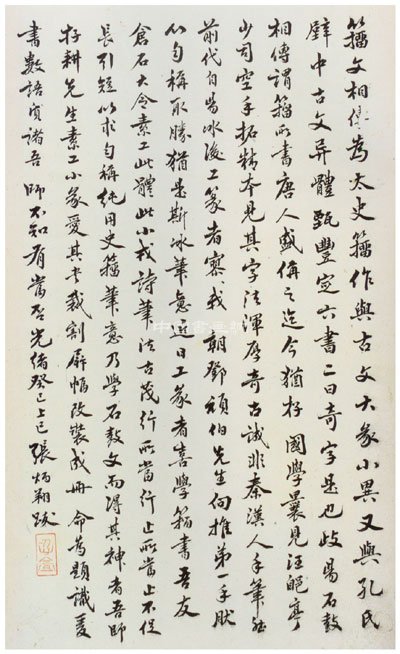 籀文相傳為太史籀作與古文大篆小異又與孔氏
壁中古文异體甄豐定六書二曰奇字是也岐陽石鼓
相傳謂籀所書唐人盛偁之迄今猶存國學曩見汪郋亭
少司空手拓精本見其字法渾厚奇古誠非秦漢人手筆能
前代自陽冰後工篆者寥我朝鄧頑伯先生向推第一手肰
以勻稱取勝猶是斯冰筆意近日工篆者喜學籀書吾友
倉石大令素工此體此小戎詩筆法古茂行所當行止所當止不促
長引短以求勻稱純用史籀筆意乃學石鼓文而得其神者吾師
存耕先生素工小篆愛其書裁割屏幅改裝成冊命為題識爰
書數語質諸吾師不知有當否光緒癸巳上巳張炳翔跋